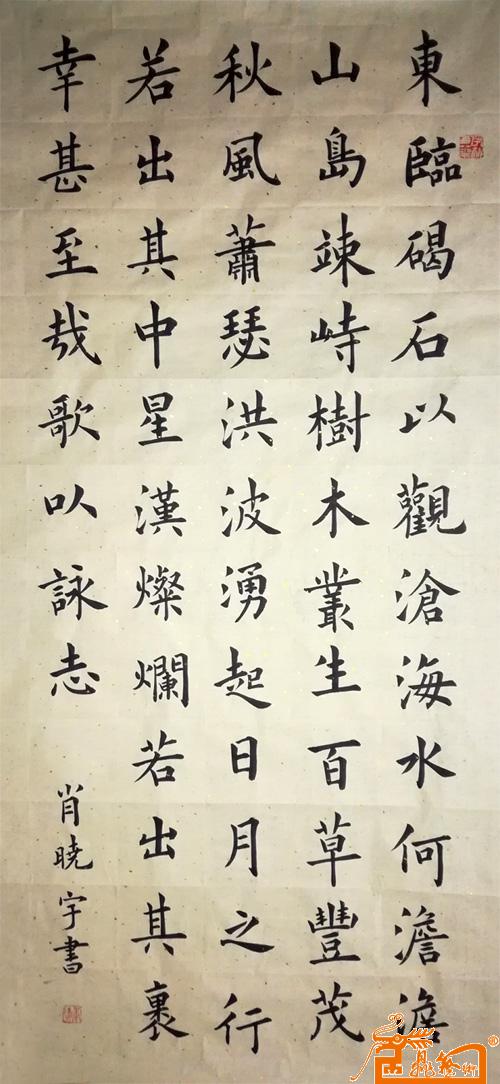 東臨碣石以觀滄海水何澹澹
山島竦峙樹木叢生百草豐茂
秋風蕭瑟洪波湧起日月之行
若出其中星漢燦爛若出其裏
幸甚至哉歌以詠志
肖晓宇書